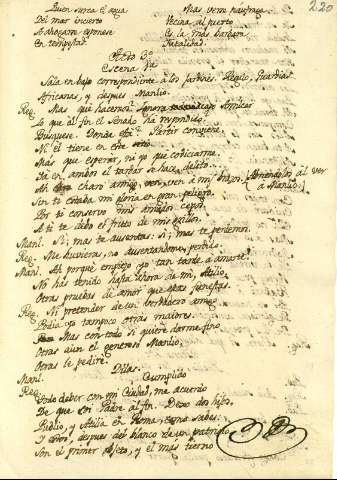 220
Quien surca el agua
Del mar incierto
A ahogarse exponese
En tempestad.
Mas, vera naufraga
Vecina al puerto
Es la mas barbara
Fatalidad.
Acto 3º
Escena 1ª
Sala en baxo correspondiente a los Jardines. Regulo, Guardias
Africanas, y despues Manlio.
Reg. Mas que hacemos? Amilcar
Lo que al fin el Senado ha respondido
Busquese. Donde està? Partir conviene,
Ni èl tiene en este
Mas que esperar, ni yo que codiciarme.
Ya en ambos el tardar se hace delito.
Ah charo amigo, ven, ven à mi brazos. Abrazandolos al ver
a Manlio.
Sin ti estaba mi gloria en gran peligro.
Por ti conservo mis amados cepos
A ti te debo el fruto de mis grillos.
Manl. Si; mas te ausentas: si; mas te perdemos.
Reg. Me huvierais, no ausentandome, perdido.
Manl. Ah porque empiezo yo tan tarde à amarte!
No has tenido hasta ahora de mi, Atilio,
Otras pruebas de amor que estas funestas.
Reg. Ni pretender de un verdadero amigo
Podia yo tampoco otras maiores.
Mas con todo si quiere darme fino
Otras aun el generoso Manlio,
Otras le pedirè.
Manl. Dilas.
Reg. Cumplido
Todo deber con mi Ciudad, me acuerdo
De que soi Padre al fin. Dexo dos hijos,
Publio, y Atilia en Roma, como sabes:
Y son, despues del blanco de la patria,
Son el primer objeto, y el mas tierno